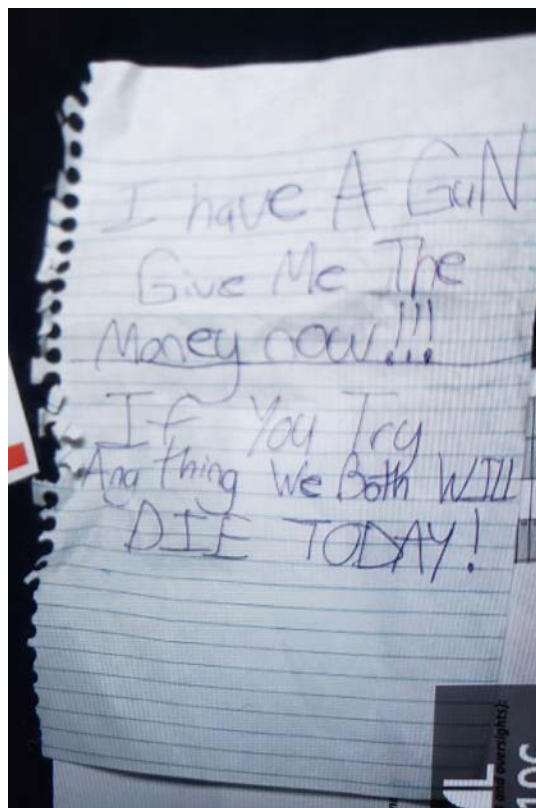 I have A GuN
Give Me The
Money now!!!
If You Try
Any thing We Both WILL
DIE TODAY!
and oversights):